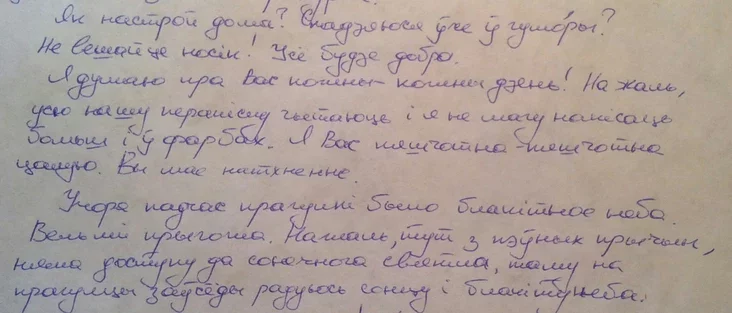 Як настрой дома? Спадзяюся ўсе ў гуморы?
Не вешайце носік! Усё будзе добра.
Я думаю пра Вас кожны-кожны дзень! На жаль,
усю нашу перапіску чытаюць і я не магу напісаць
больш і ў фарбах. Я Вас пяшчотна-пяшчотна
цалую. Вы мае натхненне.
Учора падчас прагулкі было блакітнае неба.
Вельмі прыгожа. На жаль, тут з пэўных прычын,
няма доступу да сонечнага святла, таму на
прагулцы заўсёды радуюсь сонцу і блакіту неба.